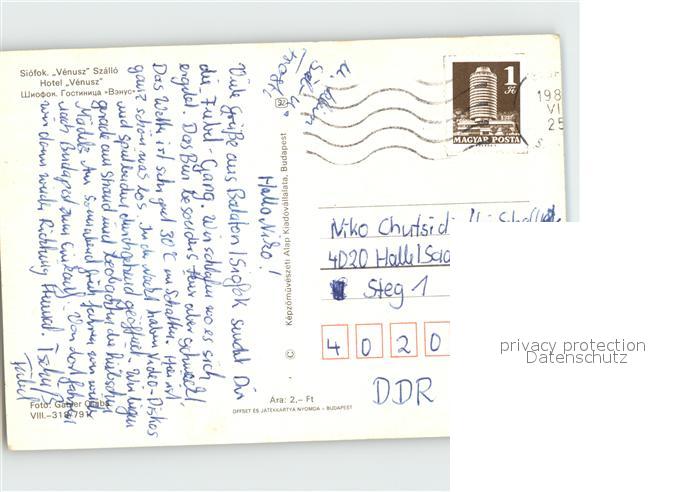 Siófok. „Vénusz” Szálló
Hotel „Vénusz”
Шиофок. Гостиница «Вэнус»
Hallo Niko!
Viele Grüße aus Balaton/Siofok sendet Dir
die Gang. Wir schlafen wo es sich
ergibt. Das Bier besonders teuer aber schmeckt.
Das Wetter ist sehr gut 30°C im Schatten. Hier ist
ganz schön was los. In der Nacht haben Video-Diskos
und durchgehend geöffnet. Wir liegen
gerade am Strand und beobachten die hübschen
Mädels. Am Sonnabend früh fahren wir weiter
nach Budapest zum Einkauf. Von dort fahren
wir dann wieder Richtung Heimat. Tschüß
Képzőművészeti Alap Kiadóvállalata, Budapest
©
Foto: Gábler Csaba
VIII.-318/791
Ára: 2,– Ft
OFFSET ÉS JÁTÉKKÁRTYA NYOMDA – BUDAPEST
1
Ft
MAGYAR POSTA
198
VI
25
Niko
4020 Halle/Saa
Steg 1
4 0 2 0
DDR
privacy protection
Datenschutz